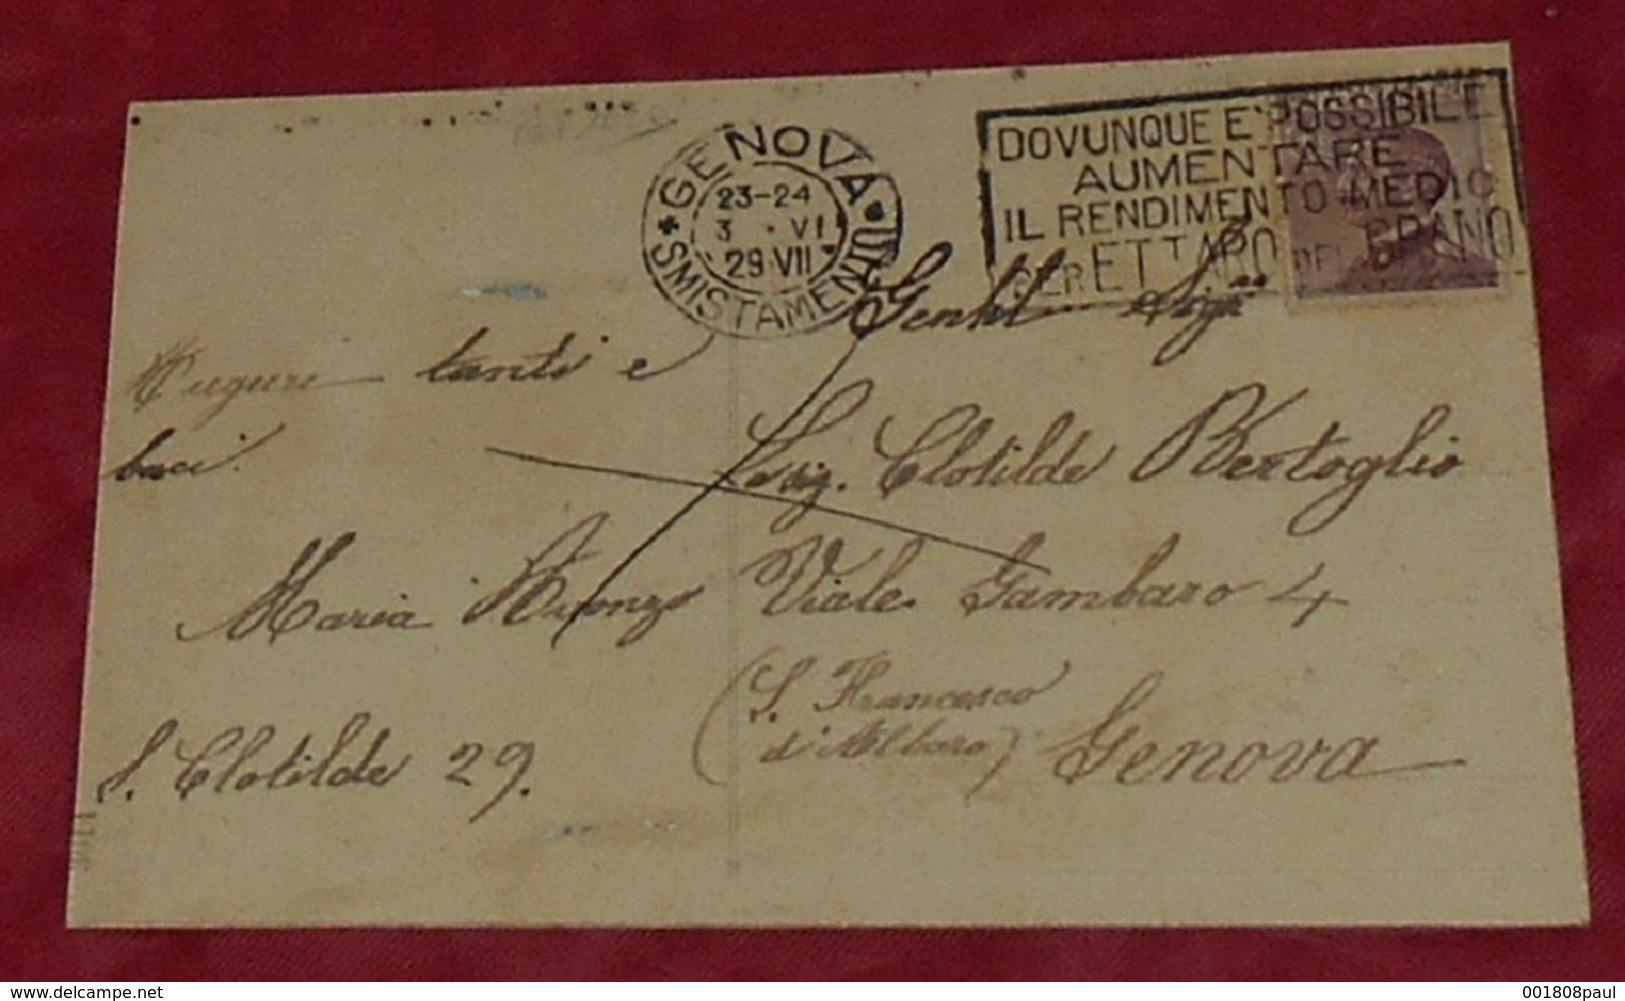 GENOVA
23-24
3 · VI
29 VII
* SMISTAMENTO *
DOVUNQUE E' POSSIBILE
AUMENTARE
IL RENDIMENTO MEDIO
PER ETTARO DEL GRANO
Gentil Sigra
Auguri tanti e
baci.
Sig. Clotilde Bertoglio
Maria
Viale Gambaro 4
(S. Francesco
d'Albaro)
Genova
S. Clotilde 29.
http://www.delcampe.net
001808paul